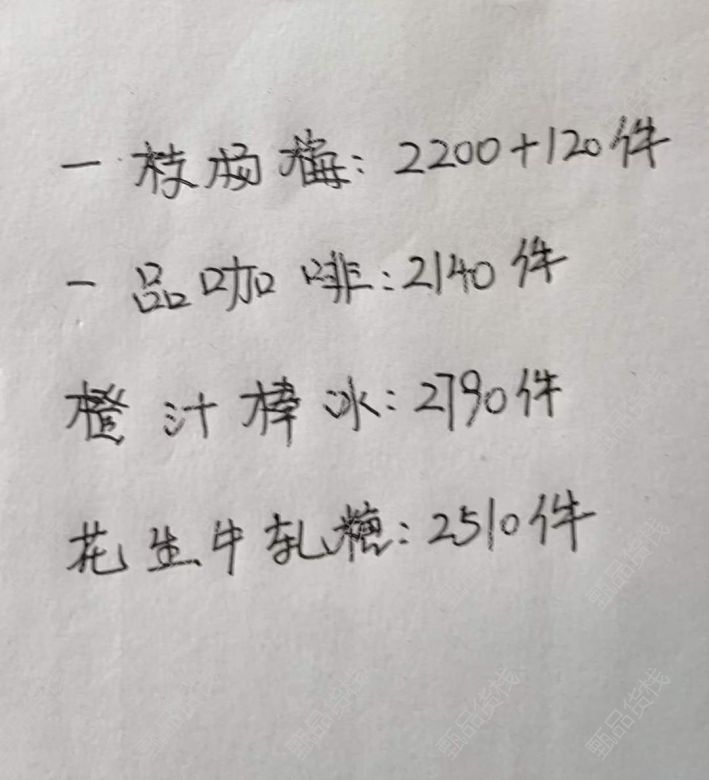 一枝杨梅：2200+120件
一品咖啡：2140件
橙汁棒冰：2790件
花生牛轧糖：2510件
甄品货栈
甄品货栈
甄品货栈
甄品货栈